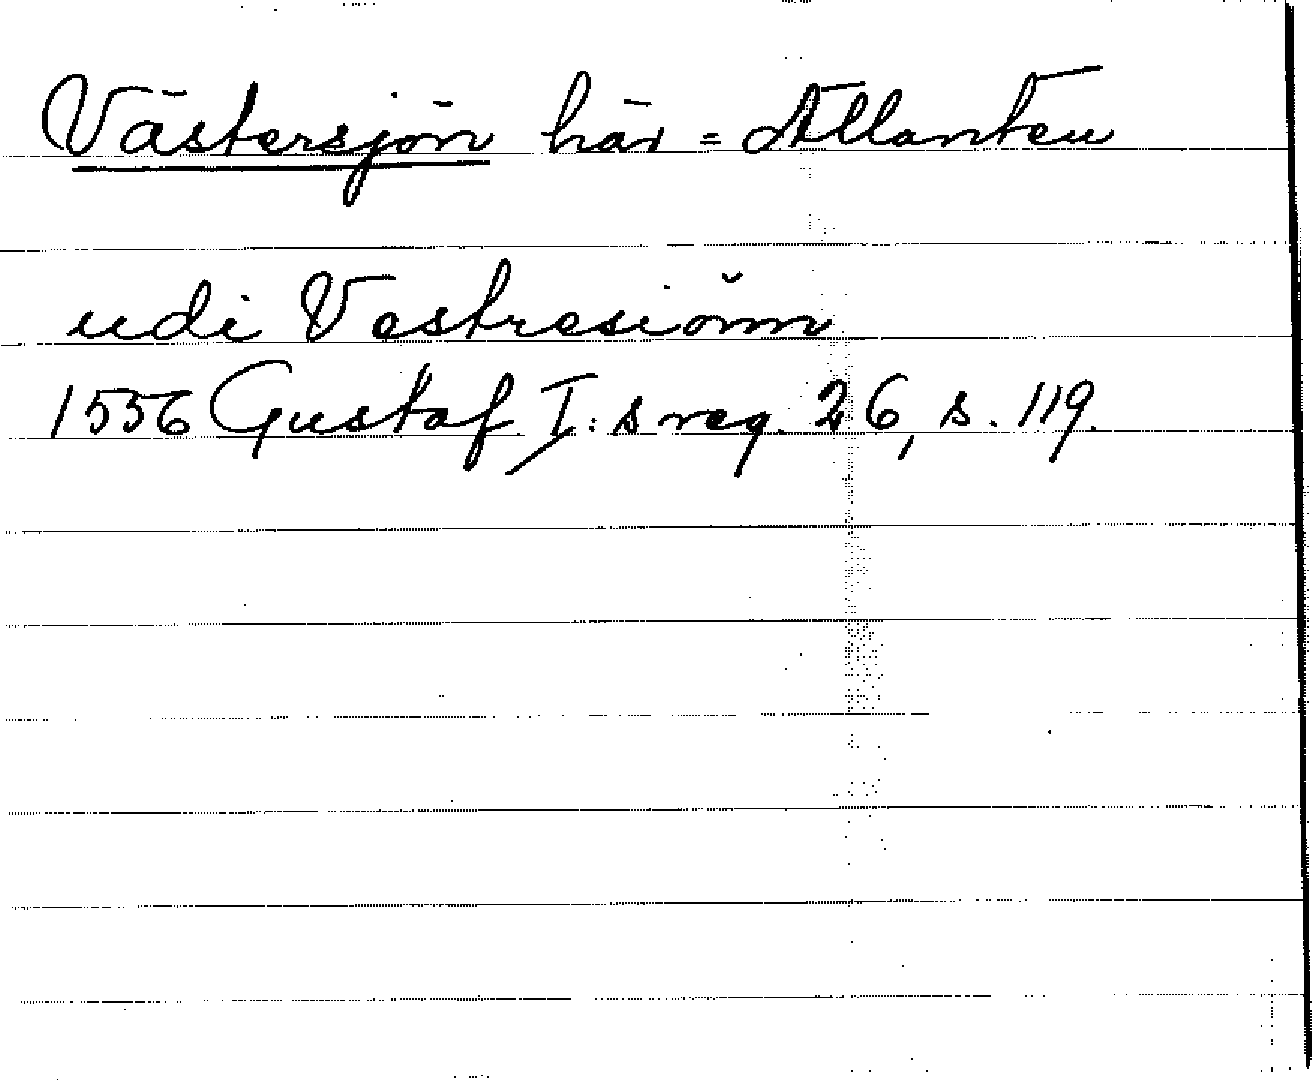 Västersjön här = Atlanten
udi Vestresiönn
1556 Gustaf I:s reg. 26, s. 119.